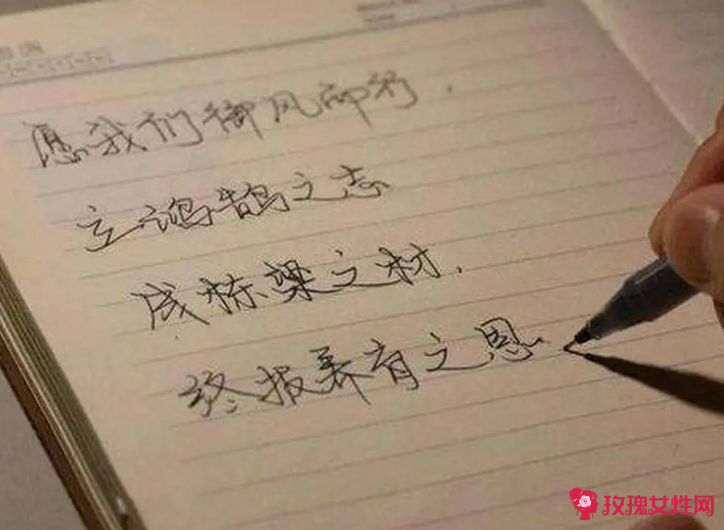 愿我们御风而行，
立鸿鹄之志
成栋梁之材，
终报养育之恩.
玫瑰女性网